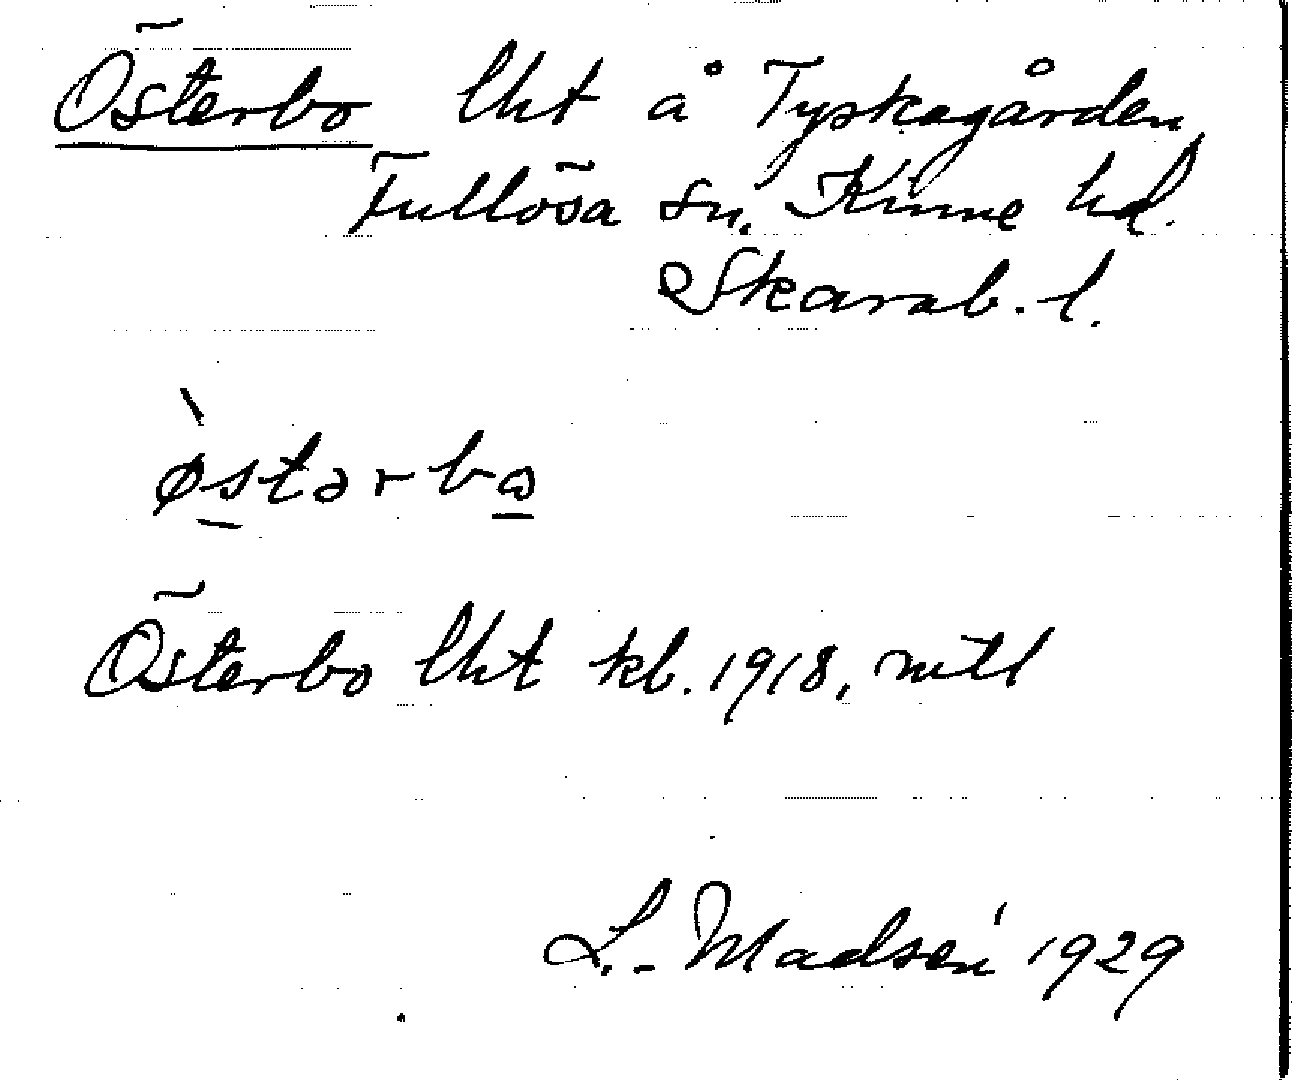 Österbo lht å Tyskagården,
Fullösa sn. Kinne hd.
Skarab. l.
ø̀stərbω
Österbo lht kb. 1918, mtl
L. Madsén 1929